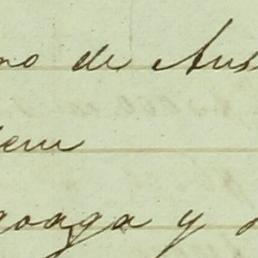 no de Aus
dem
goaga y